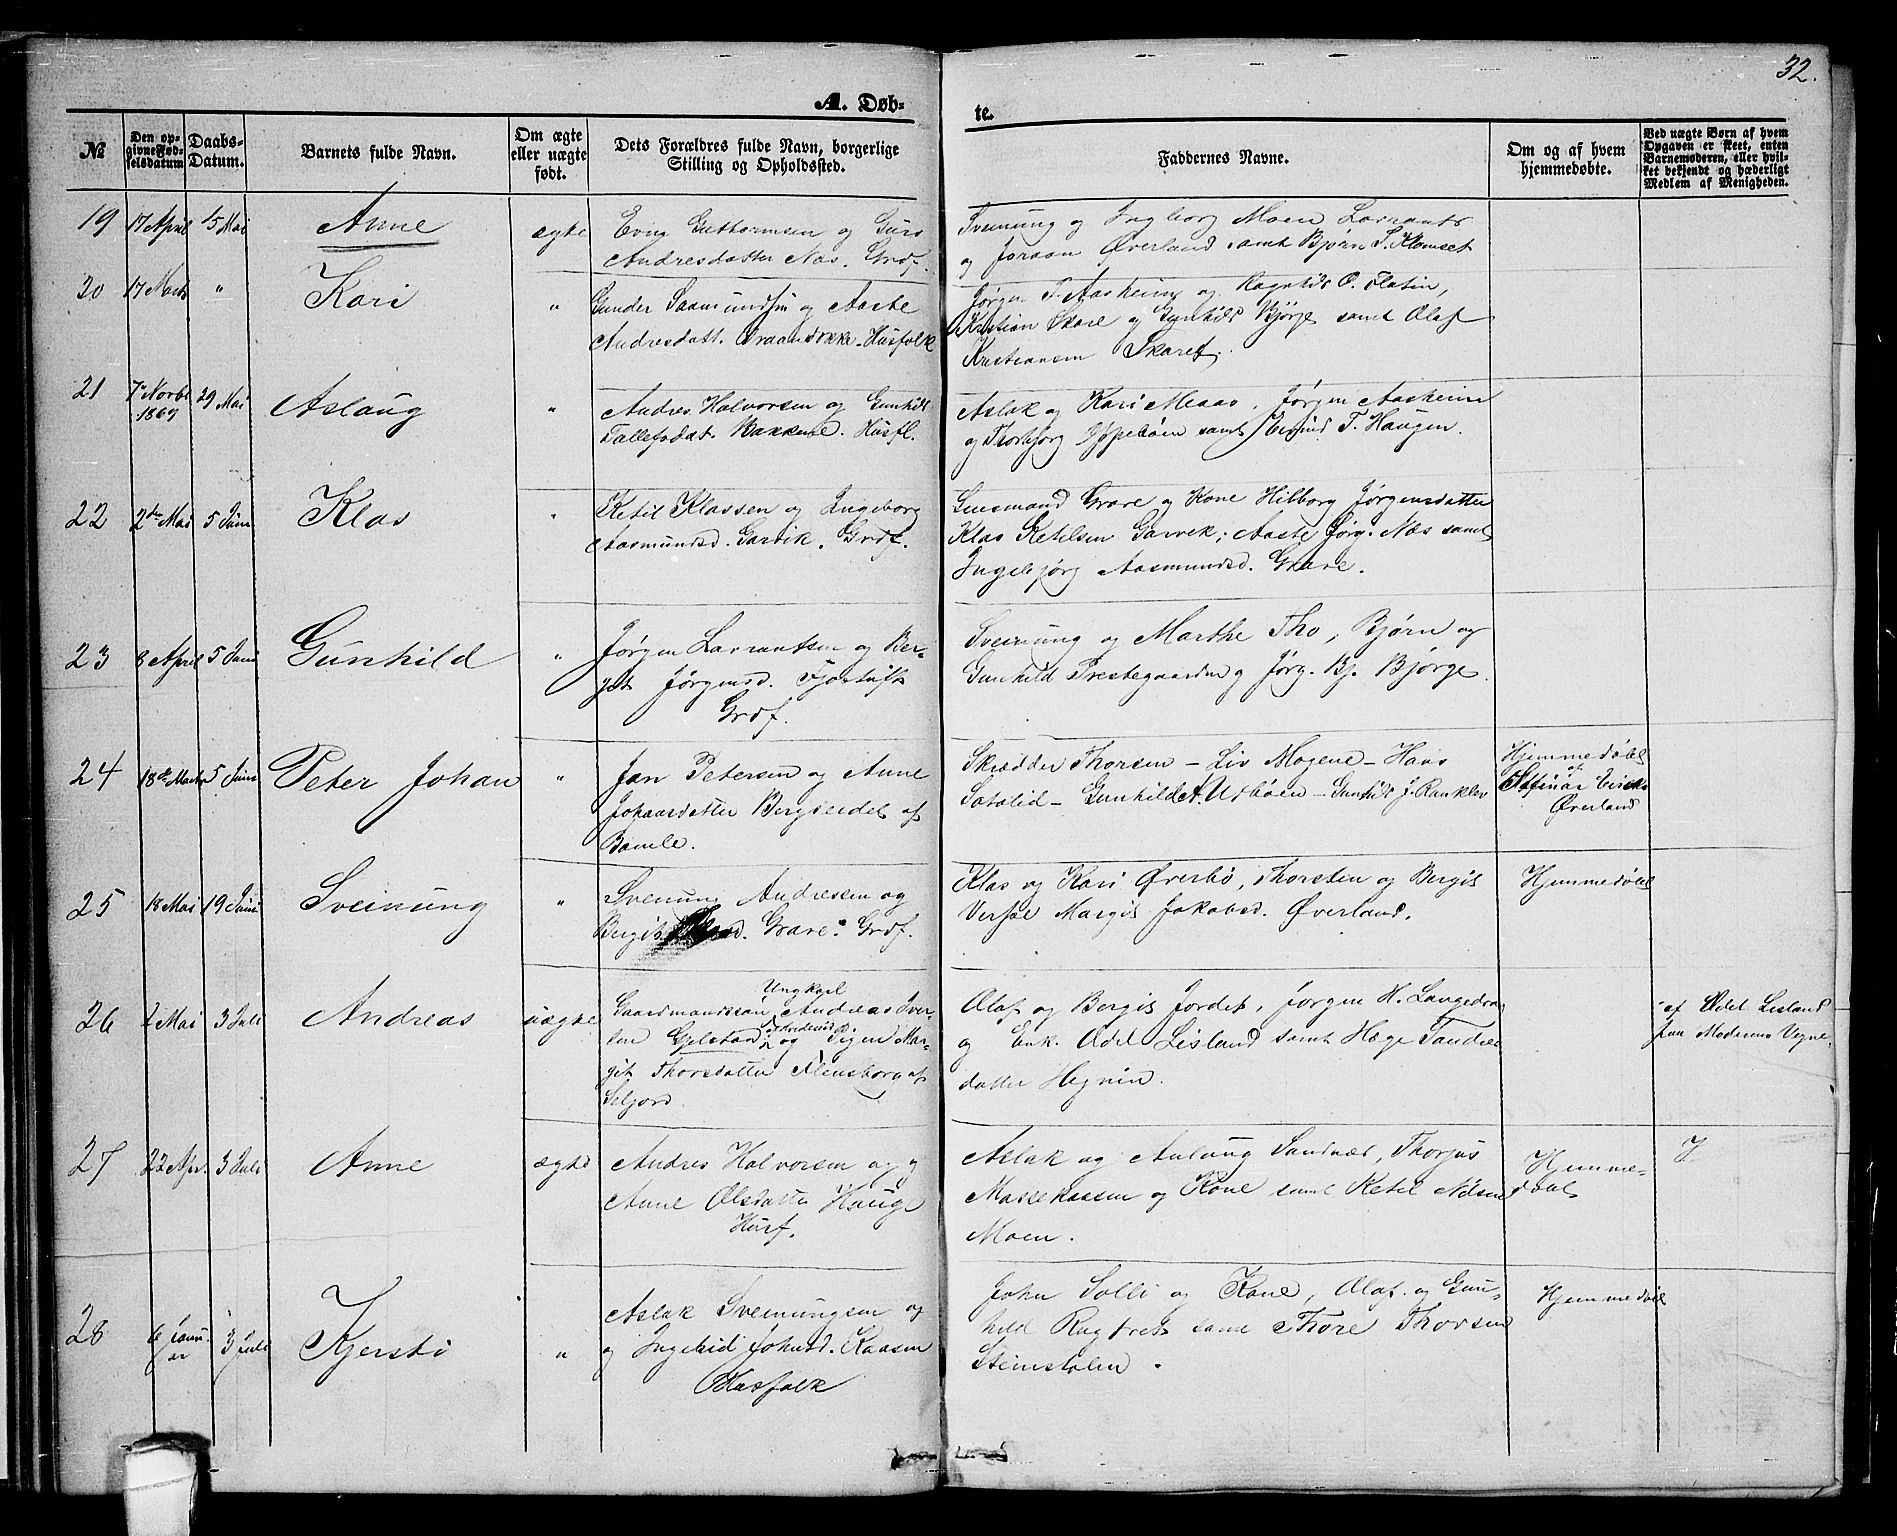 32.
A. Døb-
te.
№
Den op-
givne Fød-
selsdatum
Daabs-
Datum.
Barnets fulde Navn.
Om ægte
eller uægte
født.
Dets Forældres fulde Navn, borgerlige
Stilling og Opholdssted.
Faddernes Navne.
Om og af hvem
hjemmedøbte.
Ved uægte Børn af hvem
Opgaven er skeet, enten
Barnemoderen, eller hvil-
ket bekjendt og hæderligt
Medlem af Menigheden.
19 17 April 15 Mai Anne ægte
Guttormsen og Guro
Andresdatter Næs. Grdf.
Sveinung og Ingborg Moen
og Joraan Øverland samt Bjørn S.
20 17 Marts " Kari "
Gunder Saamundsen og Aaste
Andresdatt. Husfolk
Jørgen T. Aasheim og O. Flatin,
Kristian Skare og Gunhild Bjørge samt Olaf
Kristiansen Skaret.
21 7 Novbr 1869 29 Mai Aslaug "
Andres Halvorsen og Gunhild
Tallefsdat. Bakkene. Husfl.
Aslak og Kari Maas, Jørgen Aasheim
og Thorbjørg samt T. Haugen.
22 2den Mai 5 Juni Klas "
Ketil Klassen og Ingeborg
Aasmundsd. Garvik. Grdf.
Grave og Kone Hilborg Jørgensdatter
Klas Ketilsen Garvek; Aaste Jørg. Næs samt
Ingebjørg Aasmundsd. Grave.
23 8 April 5 Juni Gunhild "
Jørgen Lavrantsen og Ber-
git Jørgensd.
Grdf.
"
Sveinung og Marthe Tho, Bjørn og
Gunhild Prestegaarden og Jørg. Bj. Bjørge.
24 18de Marts 5 Juni Peter Johan "
Jan Petersen og Anne
Johansdatter af
Bamle.
Skrædder Thorsen - Liv Mogene -
- Gunhild A. Udbøen - Gunhild J. Rauklev
Hjemmedøbt
af
Øverland
25 18 Mai 19 Juni Sveinung "
Svenung Andressen og
Bergit Grave. Grdf.
Klas og Kari Øverbø, Thorsten og Bergit
Versto Margit Jakobsd. Øverland.
Hjemmedøbt
26 2 Mai 3 Juli Andreas uægte
Ungkarl
Gaardmandssøn Andreas Iver-
sen og Pigen Mar-
git Thorsdatter af
Seljord
Olaf og Bergit Jordet, Jørgen H. Langedrag
og Enk. Adel Lisland samt Hæge Tandes
datter Hegnin.
af Adel Lisland
paa Moderens Vegne.
27 22 Apr. 3 Juli Anne ægte
Andres Halvorsen og
Anne Olsdatter Hauge
Husf.
Aslak og Aslaug Sandnæs, Thorjus
og Kone samt Ketil Nilsen
Moen.
Hjemme-
døbt
28 6 Januar 3 Juli Kjersti "
Aslak Sveinungsen og
og Ingebid Johnsd. Kaasen
Husfolk
John Solli og Kone, Olaf og Gun-
hild samt Thore Thorsen
Steinstolen.
Hjemmedøbt